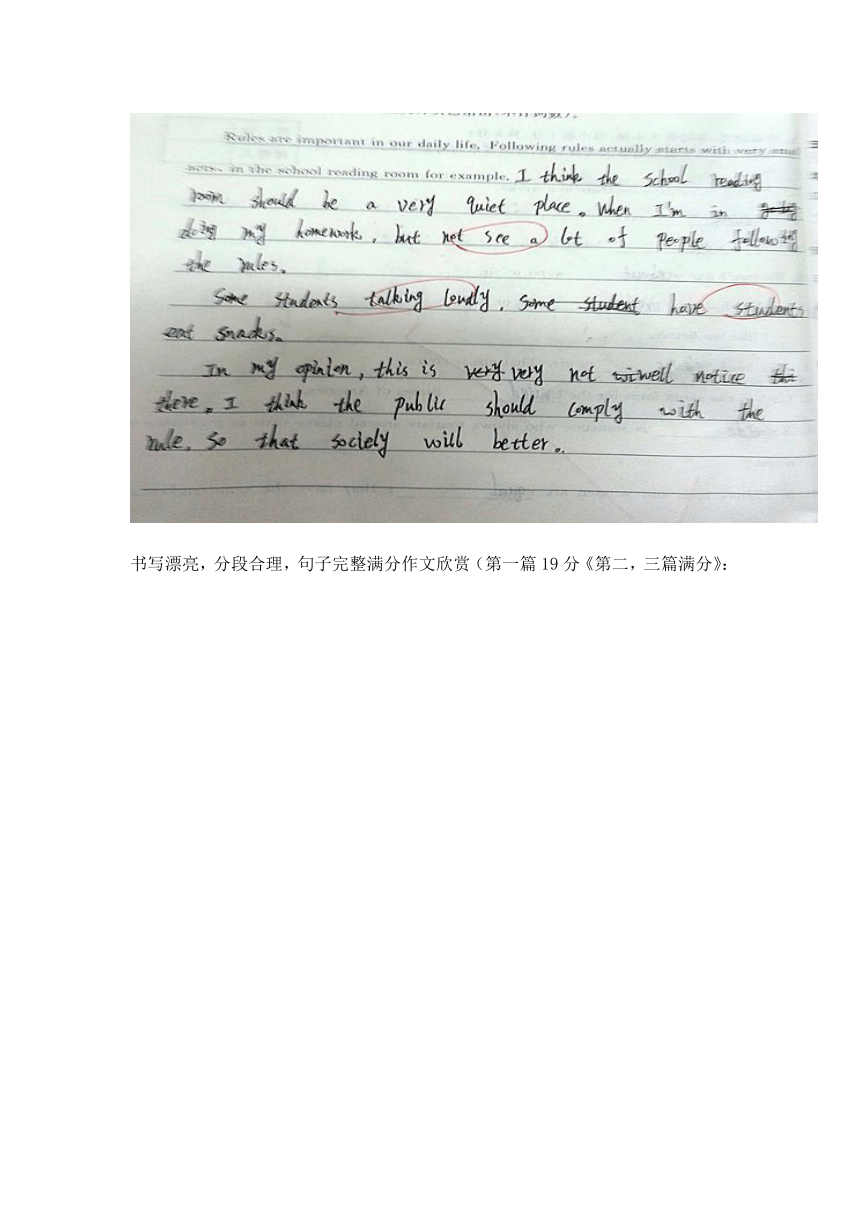 Rules are important in our daily life. Following rules actually starts with very
acts, in the school reading room for example. I think the school reading
room should be a very quiet place. When I'm in
doing my homework, but not see a lot of people following
the rules.
Some students talking loudly, some student have students
eat snacks.
In my opinion, this is very very not well notice
there. I think the public should comply with the
rule. so that society will better.
书写漂亮,分段合理,句子完整满分作文欣赏(第一篇 19 分《第二,三篇满分》: